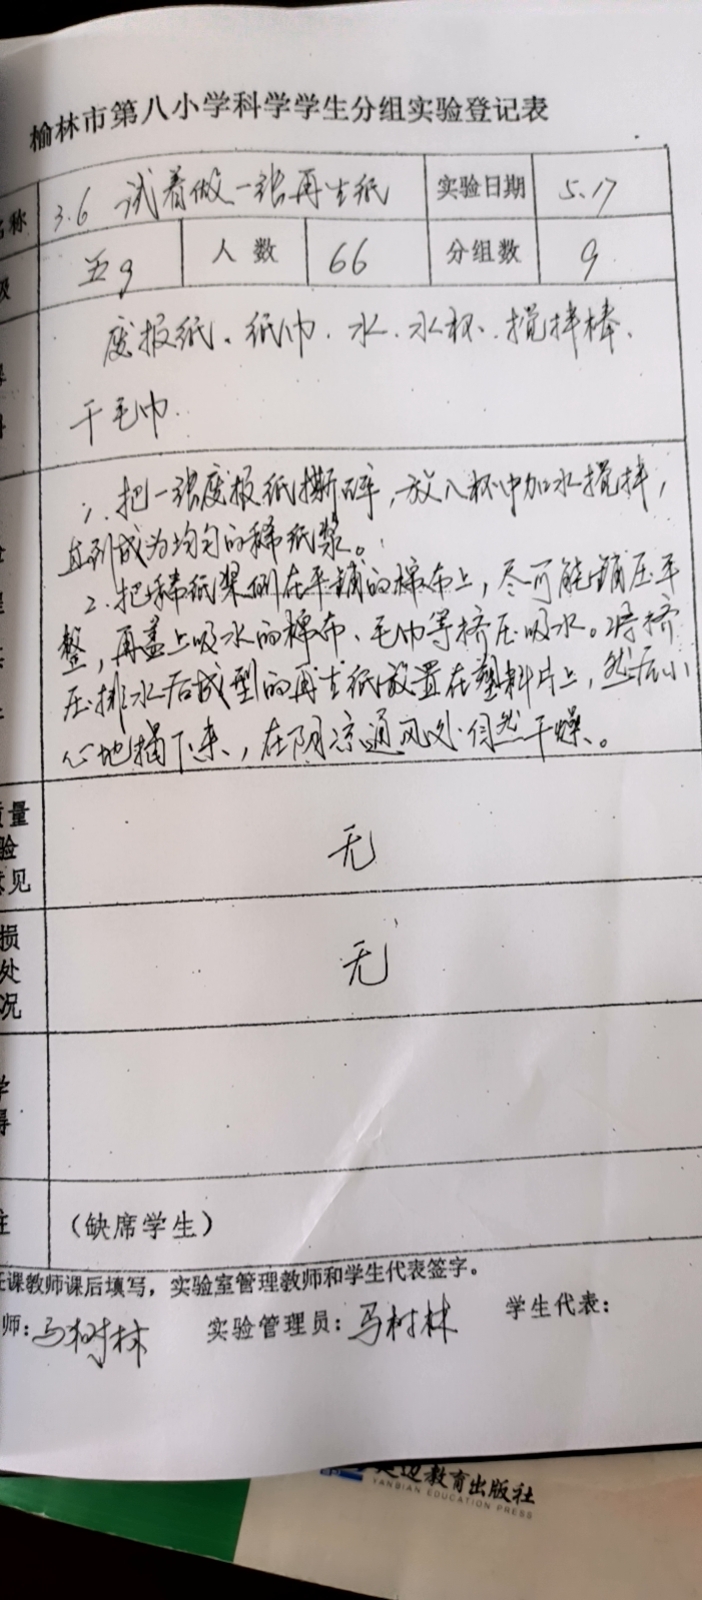 榆林市第八小学科学学生分组实验登记表
名称 3.6 试着做一张再生纸 实验日期 5.17
级 五9 人数 66 分组数 9
废报纸、纸巾、水、水杯、搅拌棒、
干毛巾.
1、把一张废报纸撕碎,放入杯中加水搅拌,
直到成为均匀的稀纸浆。
2、把稀纸浆倒在平铺的棉布上,尽可能铺压平
整,再盖上吸水的棉布、毛巾等挤压吸水。将挤
压排水后成型的再生纸放置在塑料片上,然后小
心地揭下来,在阴凉通风处自然干燥。
质量
验
意见
无
损
处
况
无
学
得
注 (缺席学生)
任课教师课后填写,实验室管理教师和学生代表签字。
师:马树林 实验管理员:马树林 学生代表:
延边教育出版社
YANBIAN EDUCATION PRESS